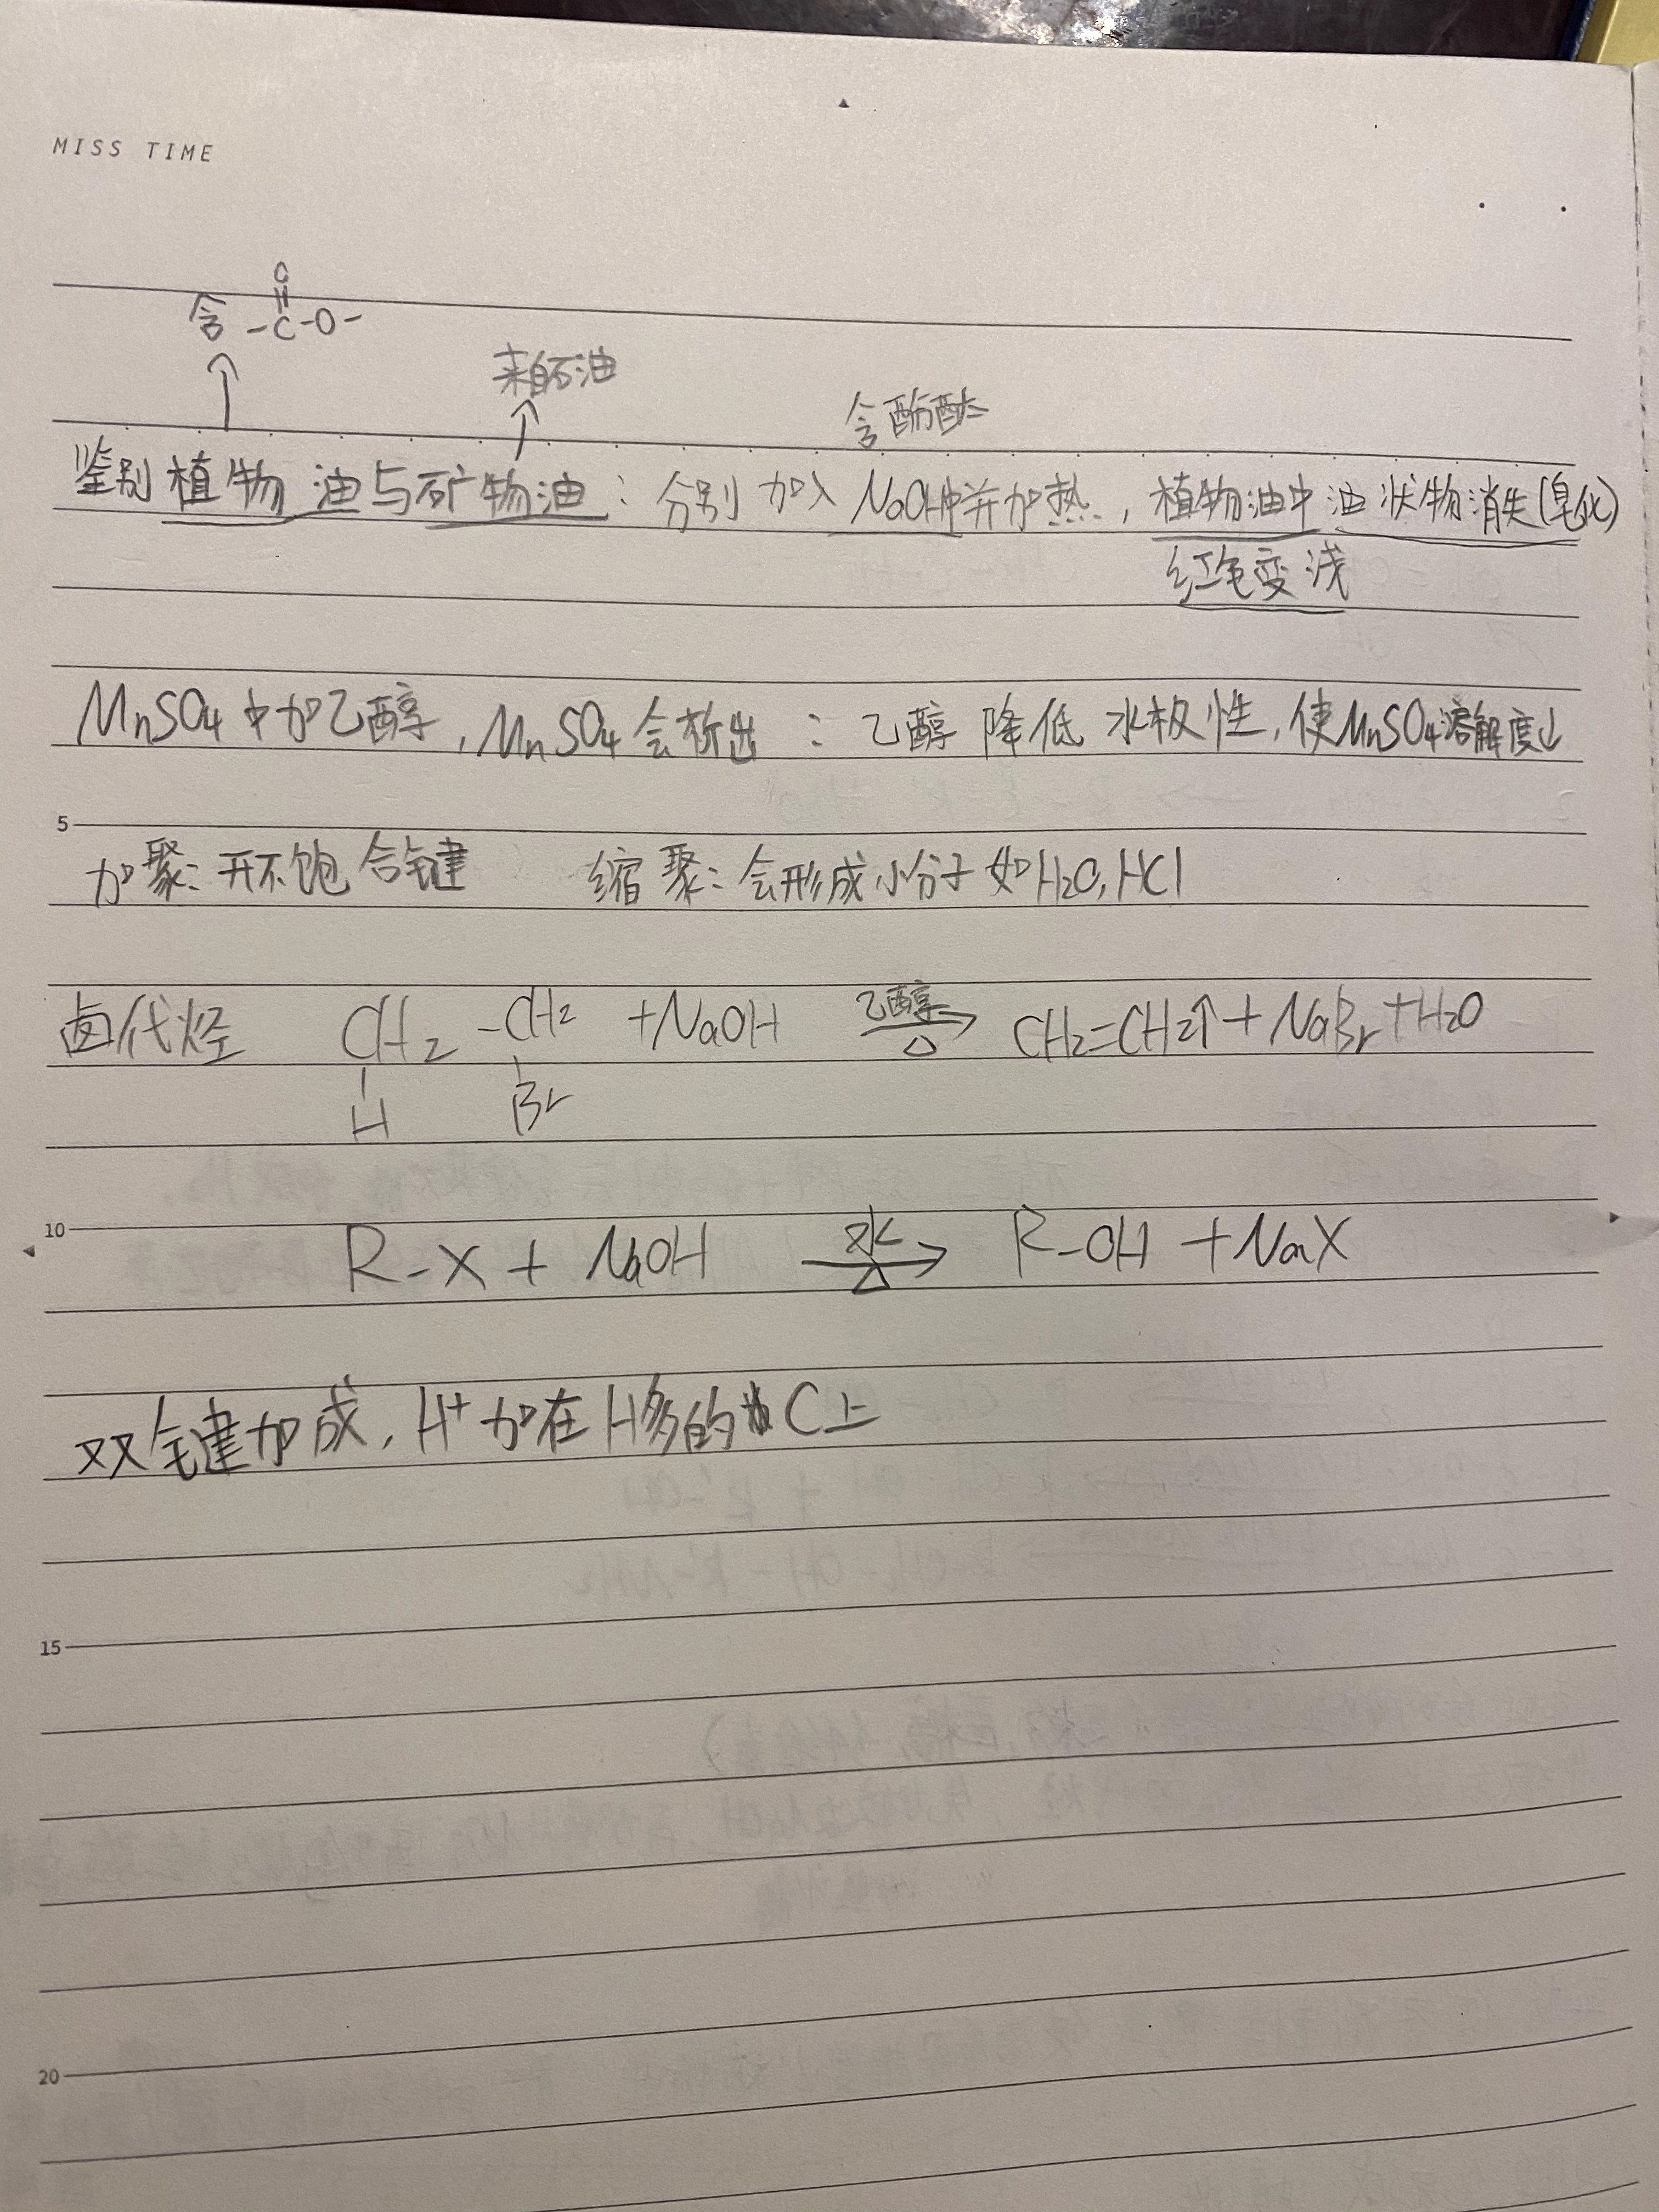 MISS TIME
O
||
含 -C-O-
来自石油
含酚酞
鉴别植物油与矿物油：分别加入NaOH中并加热，植物油中油状物消失(皂化)
红色变浅
MnSO4中加乙醇，MnSO4会析出：乙醇降低水极性，使MnSO4溶解度↓
5
加聚：开不饱合键 缩聚：会形成小分子如H2O，HCl
乙醇
卤代烃 CH2-CH2 +NaOH → CH2=CH2↑+NaBr+H2O
△
H Br
10
水
R-X + NaOH → R-OH +NaX
△
双键加成，H+加在H多的C上
15
20